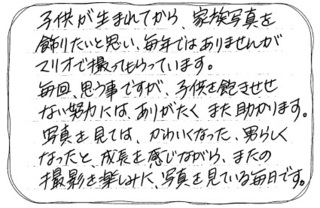 子供が生まれてから、家族写真を
飾りたいと思い、毎年ではありませんが
マリオで撮ってもらっています。
毎回、思う事ですが、子供を飽きさせ
ない努力には、ありがたく また助かります。
写真を見ては、かわいくなった、男らしく
なったと、成長を感じながら、またの
撮影を楽しみに、写真を見ている毎日です。